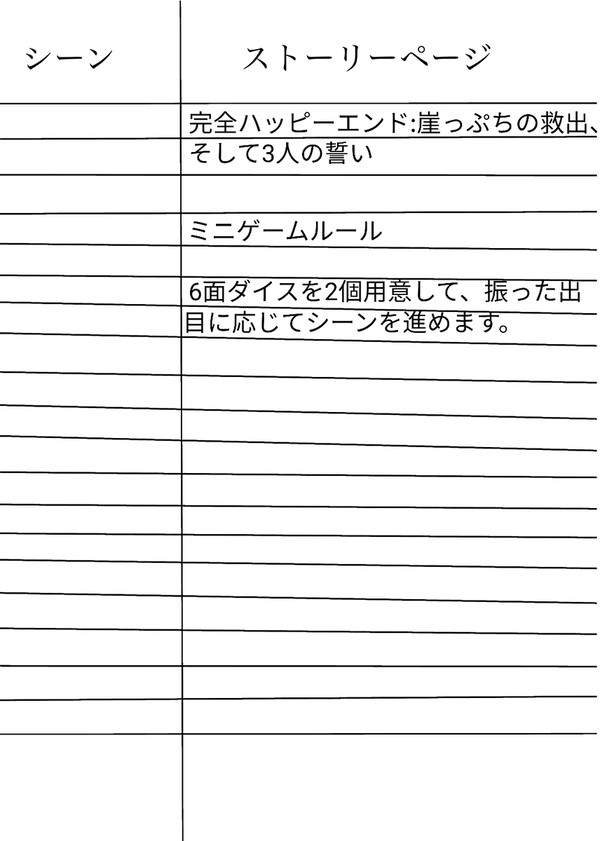 シーン
ストーリーページ
完全ハッピーエンド:崖っぷちの救出、
そして3人の誓い
ミニゲームルール
6面ダイスを2個用意して、振った出
目に応じてシーンを進めます。